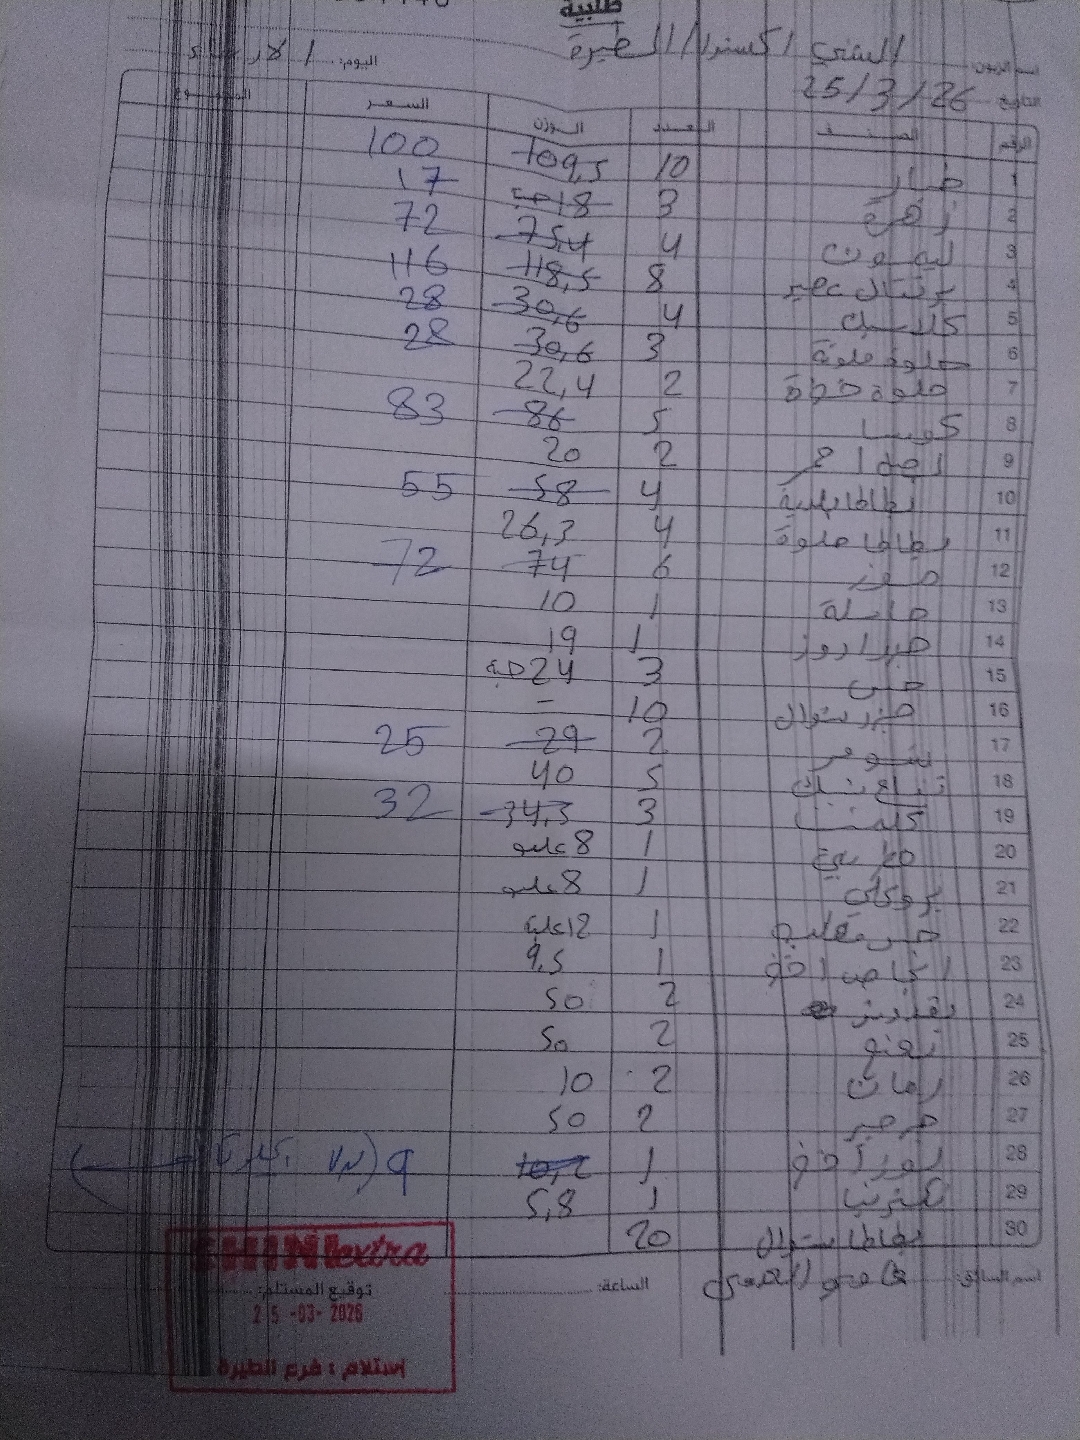 طلبية
اسم الزبون: الشني اكسترا / الطيرة
اليوم: الاربعاء
التاريخ 25/3/26
الرقم الصنف العدد الوزن السعر المجموع
1 خيار 10 109,5 100
2 زهرة 3 18 17
3 ليمون 4 75,4 72
4 برتقال عصير 8 118,5 116
5 4 30,6 28
6 حلوة ملونة 3 30,6 28
7 حلوة خضرة 2 22,4
8 كوسا 5 86 83
9 2 20
10 بطاطا بلدية 4 58 55
11 بطاطا حلوة 4 26,3
12 موز 6 74 72
13 1 10
14 1 19
15 خس 3 24 حبة
16 جزر ستوال 10 -
17 شومر 2 29 25
18 5 40
19 كلمنتينا 3 34,5 32
20 1 8 علب
21 بروكلي 1 8 علب
22 1 12 علبة
23 1 9,5
24 بقدونس 2 50
25 نعنع 2 50
26 رمان 2 10
27 جرجير 2 50
28 1 10,2 9
29 نكترينا 1 5,8
30 بطاطا ستوال 20
اسم السائق:
الساعة:
SHINI extra
توقيع المستلم:
25 -03- 2026
إستلام : فرع الطيرة